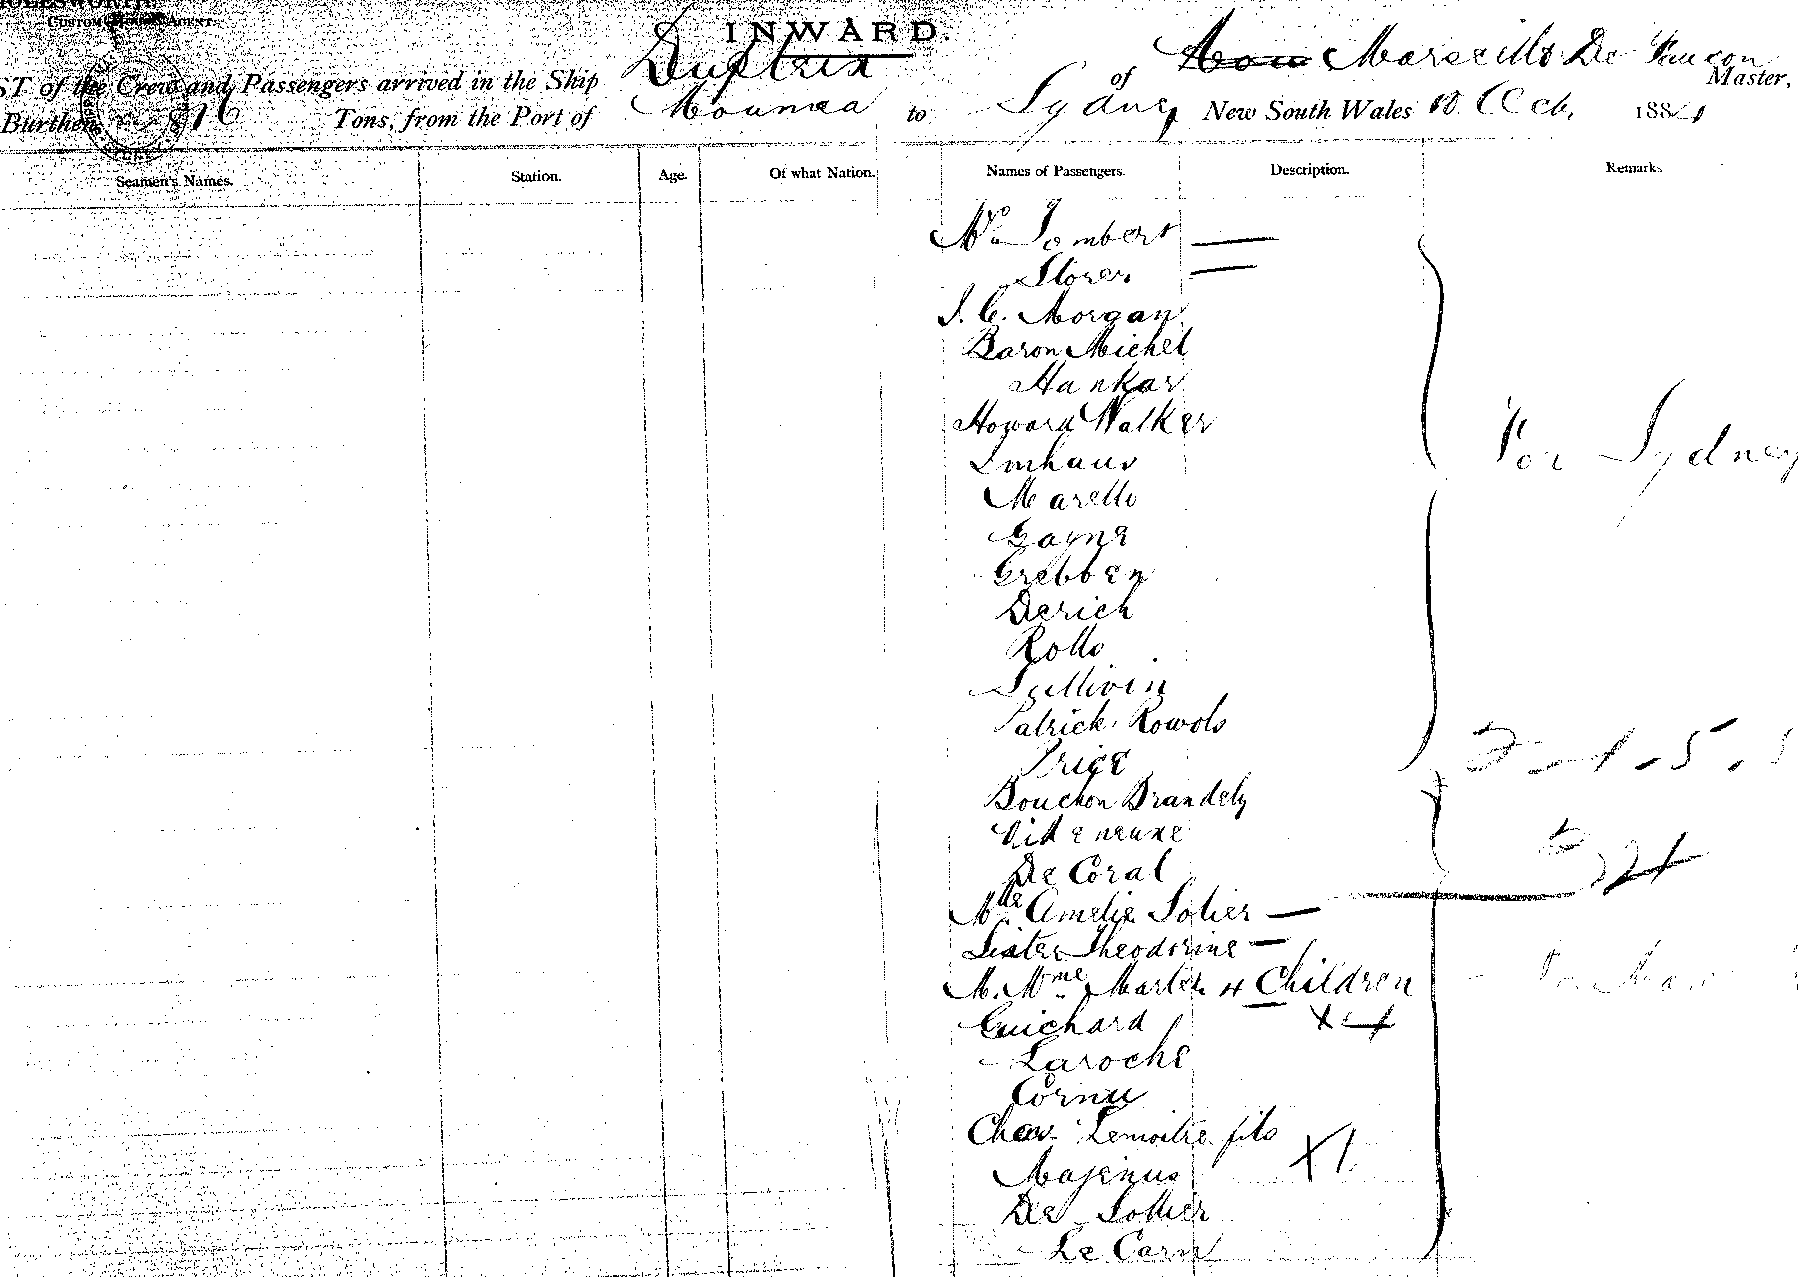 CUSTOM HOUSE AGENT.
INWARD.
LIST of the Crew and Passengers arrived in the Ship Dupleix of Marseille De Faucon Master,
Burthen Tons, from the Port of Noumea to Sydney New South Wales 10 Oct. 1884
Seamen's Names. Station. Age. Of what Nation. Names of Passengers. Description. Remarks.
Mr Jombert —
Storer —
J. C. Morgan
Baron Michel
Hankar
Howard Walker
For Sydney
Imhaus
Marello
Gayne
Grebben
Derich
Rollo
Sullivin
Patrick Rowols
Price
Bouchon Brandely
De Coral
Mlle Amelie Solier —
Sister Theodorine —
M. Mme Martin 4 Children
Guichard
Laroche
Cornu
Lemoitre fils
X1
Majenus
De Sollier
Le Carn